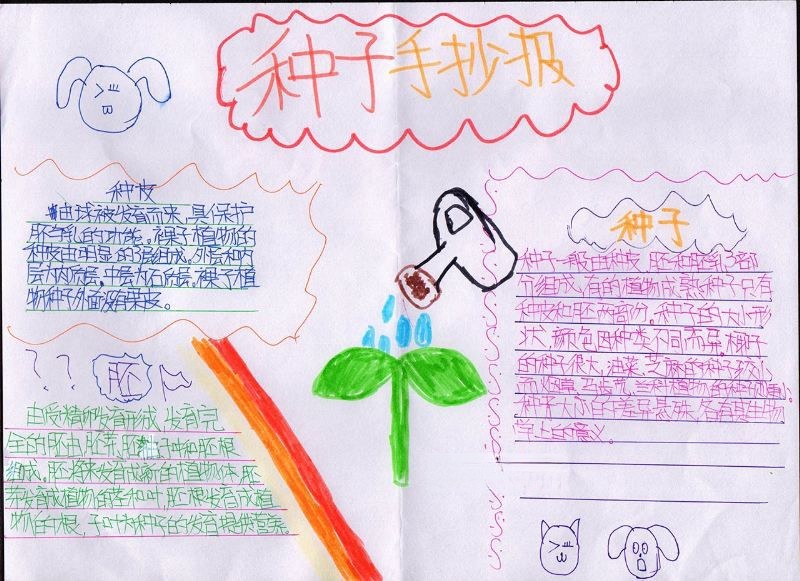 种子手抄报
种皮
由珠被发育而来,具保护
胚与胚乳的功能。裸子植物的
种皮由明显的3层组成。外层和内
层为肉质层,中层为石质层。裸子植
物种子外面没有果皮。
? ? 胚
由受精卵发育形成,发育完
全的胚由胚芽、胚轴、子叶和胚根
组成。胚将来发育成新的植物体,胚
芽发育成植物的茎和叶,胚根发育成植
物的根,子叶为种子的发育提供营养。
种子
种子一般由种皮、胚和胚乳3部
分组成,有的植物成熟种子只有
种皮和胚两部分。种子的大小形
状、颜色因种类不同而异。椰子
的种子很大,油菜、芝麻的种子较小,
而烟草、马齿苋、兰科植物的种子则更小。
种子大小的差异悬殊,各有其生物
学上的意义。